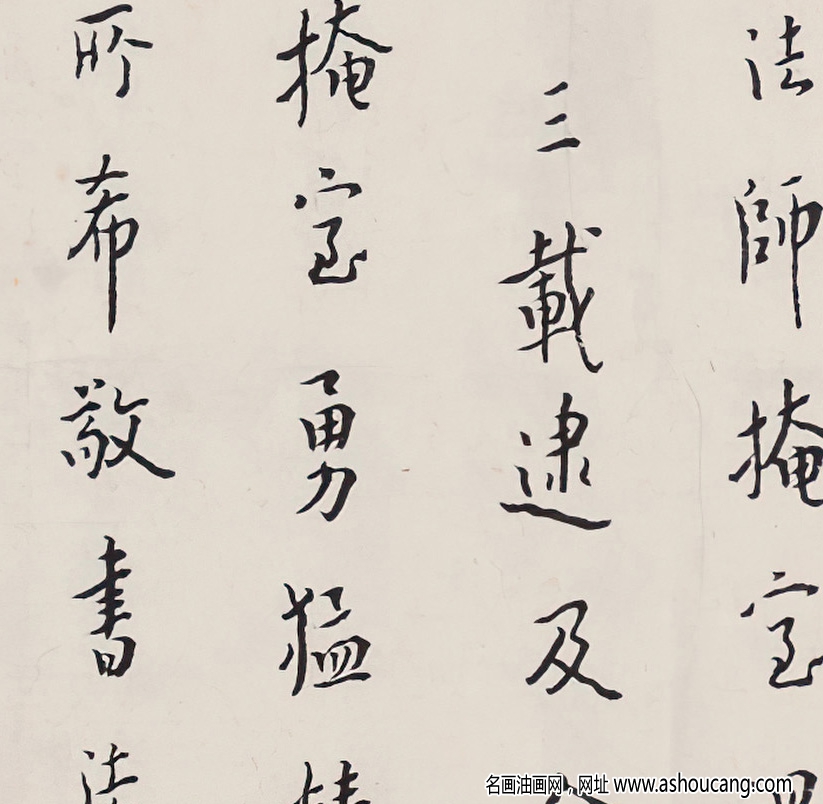 法師掩室
三載逮及
掩室勇猛精
所希敬書法
名画油画网，网址 www.ashoucang.com